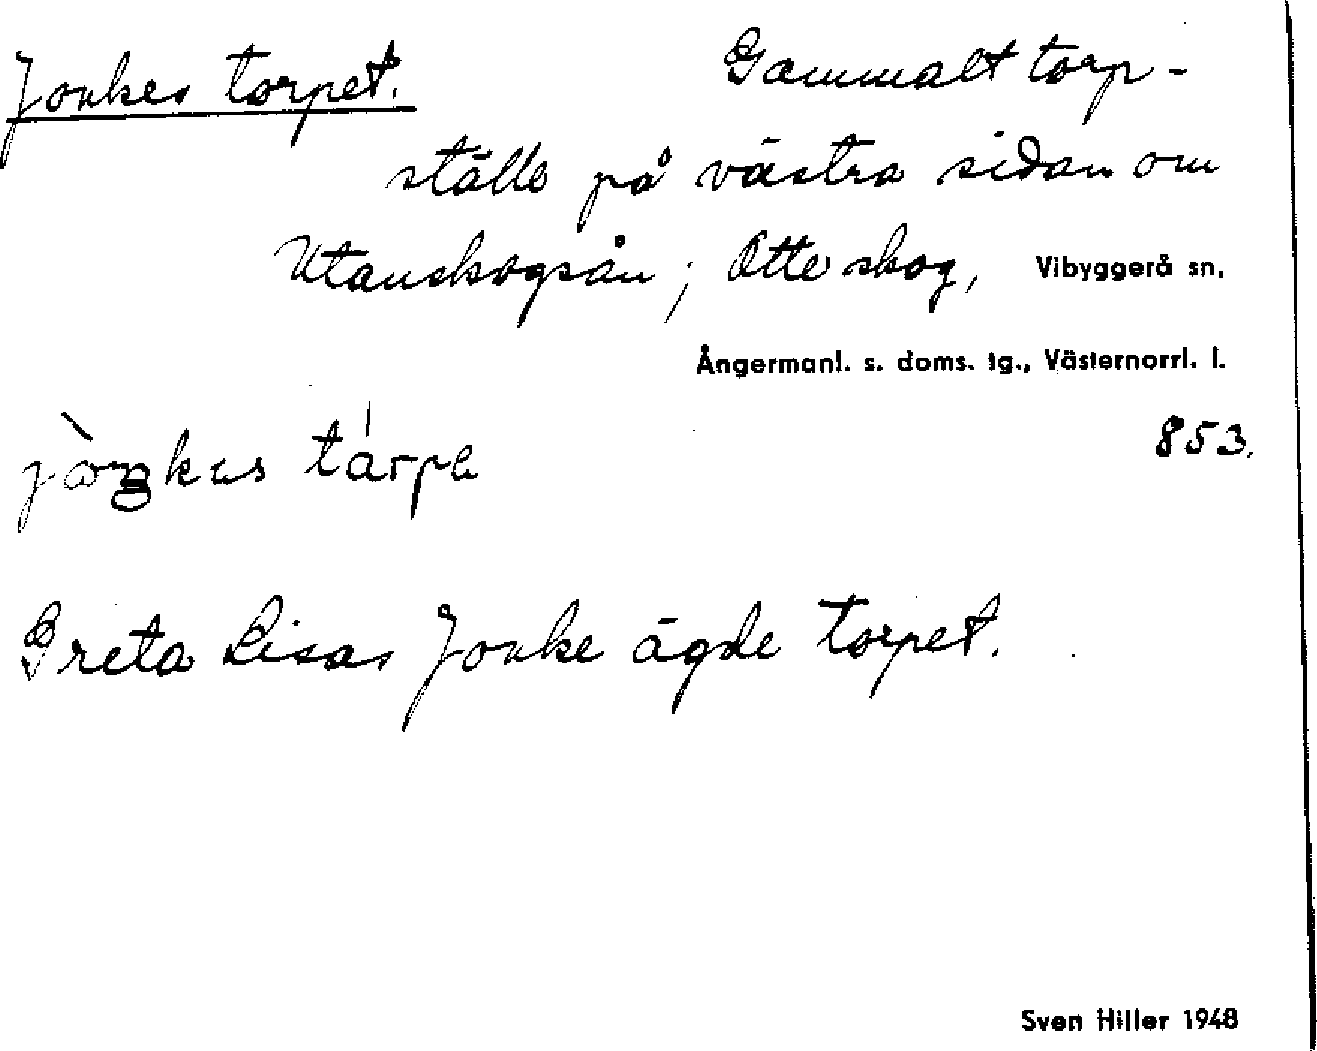 Jonkes torpet. Gammalt torp-
ställe på västra sidan om
Utanskogsån; Otte skog, Vibyggerå sn.
Ångermanl. s. doms. tg., Västernorrl. l.
853.
Greta Lisas Jonke ägde torpet.
Sven Hiller 1948